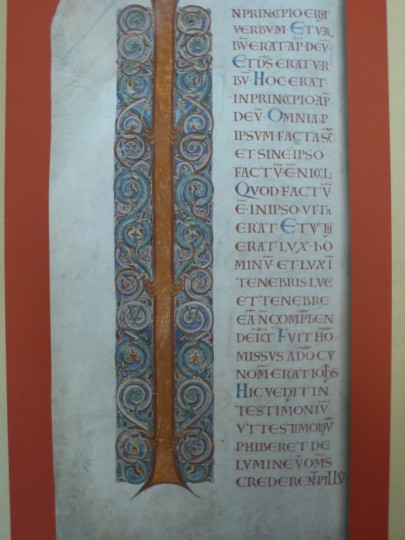 NPRINCIPIO ERAT
VERBUM · ET VER
BŪ ERAT AP̄ DEV̄ ·
ET DS̄ ERAT VER
BŪ · HOC ERAT
IN PRINCIPIO AP̄
DEV̄ · OMNIA P
IPSUM FACTA SŪ
ET SINE IPSO
FACTV̄ E NICL
QUOD FACTV̄
E IN IPSO VITA
ERAT · ET VITA
ERAT LUX HO
MINV̄ · ET LUX Ī
TENEBRIS LVC
ET TENEBRE
EĀ N COMPLEN
DERT̄ · FVIT HO
MISSUS A DO CV
NOM̄ ERAT IOHS
HIC VENIT IN
TESTIMONIV̄
VT TESTIMONIV̄
PHIBERET DE
LVMINE V̄ OMS̄
CREDERENT P ILLV̄